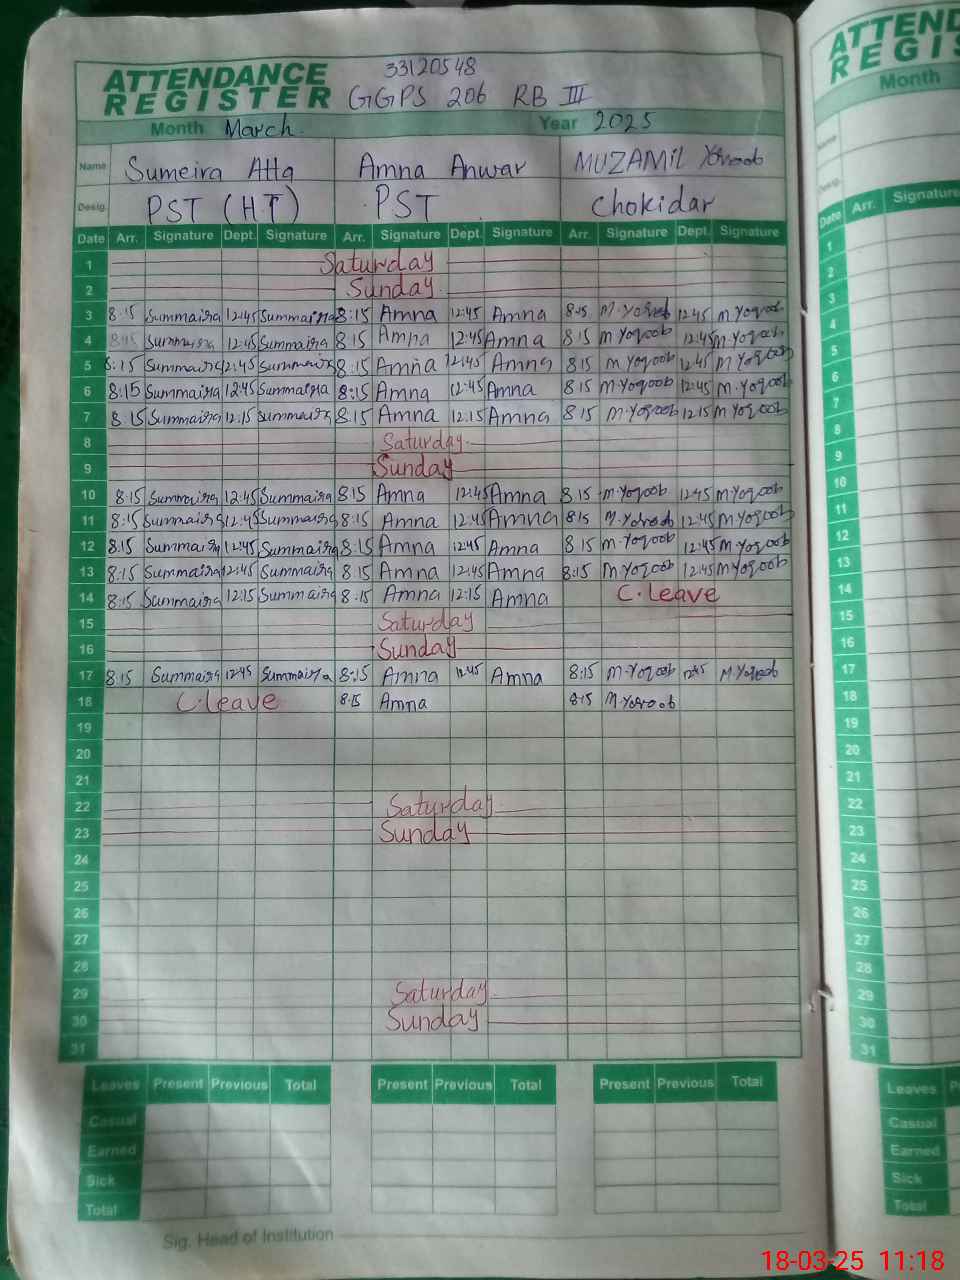 33120548
ATTENDANCE REGISTER GGPS 206 RB III
Month March. Year 2025
Name Sumeira Atta Amna Anwar MUZAMIL Yaqoob
Desig. PST (HT) PST Chokidar
Date Arr. Signature Dept. Signature Arr. Signature Dept. Signature Arr. Signature Dept. Signature
1 Saturday
2 Sunday
3 8:15 Summaira 12:45 Summaira 8:15 Amna 12:45 Amna 8:15 M.Yaqoob 12:45 M.Yaqoob
4 8:15 Summaira 12:45 Summaira 8:15 Amna 12:45 Amna 8:15 M.Yaqoob 12:45 M.Yaqoob
5 8:15 Summaira 12:45 Summaira 8:15 Amna 12:45 Amna 8:15 M.Yaqoob 12:45 M.Yaqoob
6 8:15 Summaira 12:45 Summaira 8:15 Amna 12:45 Amna 8:15 M.Yaqoob 12:45 M.Yaqoob
7 8:15 Summaira 12:15 Summaira 8:15 Amna 12:15 Amna 8:15 M.Yaqoob 12:15 M.Yaqoob
8 Saturday
9 Sunday
10 8:15 Summaira 12:45 Summaira 8:15 Amna 12:45 Amna 8:15 M.Yaqoob 12:45 M.Yaqoob
11 8:15 Summaira 12:45 Summaira 8:15 Amna 12:45 Amna 8:15 M.Yaqoob 12:45 M.Yaqoob
12 8:15 Summaira 12:45 Summaira 8:15 Amna 12:45 Amna 8:15 M.Yaqoob 12:45 M.Yaqoob
13 8:15 Summaira 12:45 Summaira 8:15 Amna 12:45 Amna 8:15 M.Yaqoob 12:45 M.Yaqoob
14 8:15 Summaira 12:15 Summaira 8:15 Amna 12:15 Amna C.leave
15 Saturday
16 Sunday
17 8:15 Summaira 12:45 Summaira 8:15 Amna 12:45 Amna 8:15 M.Yaqoob 12:45 M.Yaqoob
18 C.leave 8:15 Amna 8:15 M.Yaqoob
19
20
21
22 Saturday
23 Sunday
24
25
26
27
28
29 Saturday
30 Sunday
31
Leaves Present Previous Total Present Previous Total Present Previous Total
Casual
Earned
Sick
Total
Sig. Head of Institution
ATTEN
REGIS
Month
Name
Desig.
Date Arr. Signature
1
2
3
4
5
6
7
8
9
10
11
12
13
14
15
16
17
18
19
20
21
22
23
24
25
26
27
28
29
30
31
Leaves
Casual
Earned
Sick
Total
18-03-25 11:18